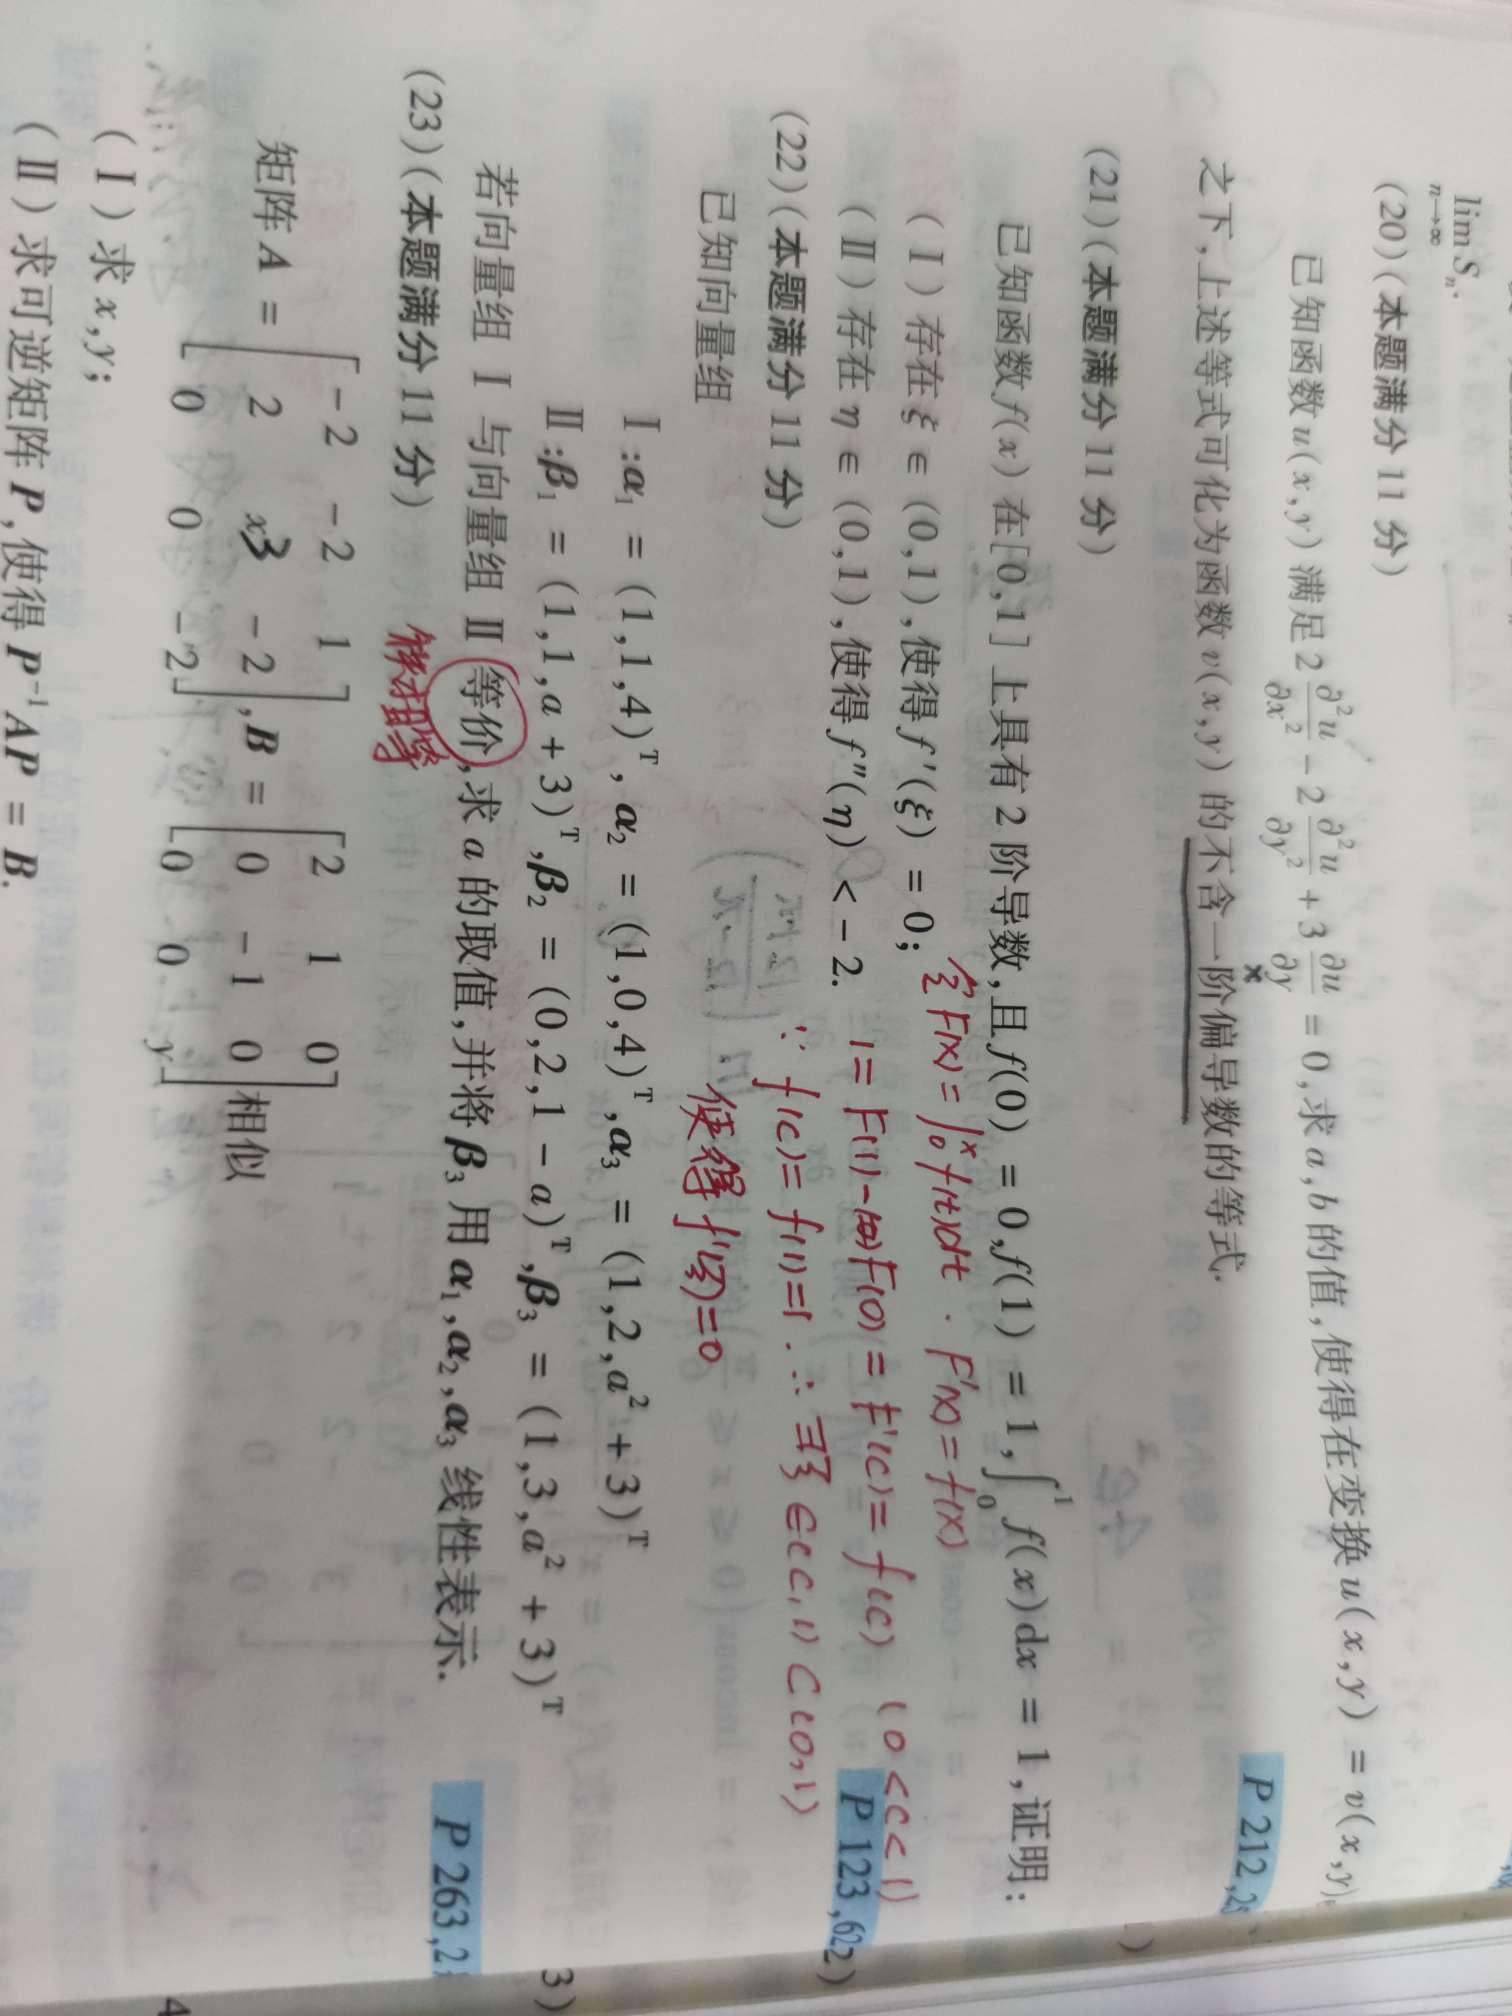 lim Sₙ.
n→∞
(20)(本题满分 11 分)
已知函数 u(x,y) 满足 2 ∂²u/∂x² - 2 ∂²u/∂y² + 3 ∂u/∂y = 0,求 a,b 的值,使得在变换 u(x,y) = v(x,y)
之下,上述等式可化为函数 v(x,y) 的不含一阶偏导数的等式.
P 212,2
(21)(本题满分 11 分)
已知函数 f(x) 在 [0,1] 上具有 2 阶导数,且 f(0) = 0,f(1) = 1,∫₀¹ f(x)dx = 1,证明:
(Ⅰ) 存在 ξ ∈ (0,1),使得 f'(ξ) = 0;
令 F(x) = ∫₀ˣ f(t)dt . F'(x) = f(x)
(Ⅱ) 存在 η ∈ (0,1),使得 f''(η) < - 2.
1 = F(1) - F(0) = F'(c) = f(c) (0<c<1)
P 123,62
(22)(本题满分 11 分)
∵ f(c) = f(1) = 1 . ∴ ∃ξ ∈ (c,1) ⊂ (0,1)
已知向量组
使得 f'(ξ) = 0
Ⅰ:α₁ = (1,1,4)ᵀ, α₂ = (1,0,4)ᵀ,α₃ = (1,2,a² + 3)ᵀ
Ⅱ:β₁ = (1,1,a + 3)ᵀ,β₂ = (0,2,1 - a)ᵀ,β₃ = (1,3,a² + 3)ᵀ
若向量组 Ⅰ 与向量组 Ⅱ 等价,求 a 的取值,并将 β₃ 用 α₁,α₂,α₃ 线性表示.
秩相等
P 263,2
(23)(本题满分 11 分)
矩阵 A = [-2 -2 1
2 x 3 -2
0 0 -2], B = [2 1 0
0 -1 0
0 0 y] 相似
(Ⅰ) 求 x,y;
(Ⅱ) 求可逆矩阵 P,使得 P⁻¹AP = B.